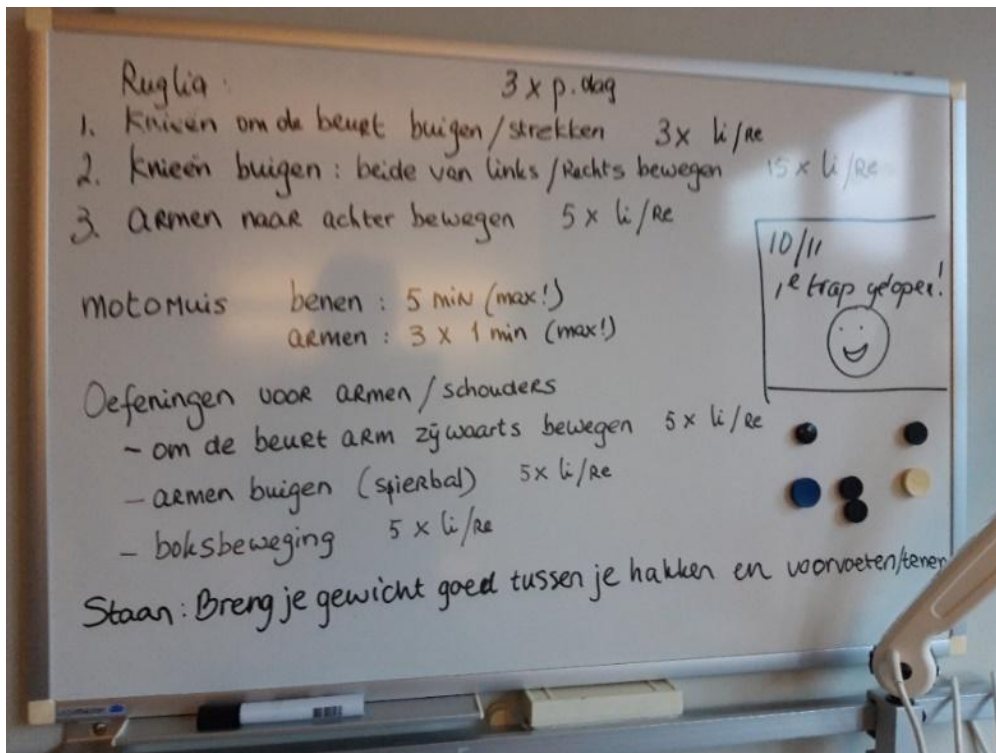 Ruglia: 3 x p. dag
1. Knieën om de beurt buigen / strekken 3x li/Re
2. Knieën buigen : beide van links / Rechts bewegen 15 x li/Re
3. ARmen naar achter bewegen 5 x li/Re
10/11
1e trap gelopen!
MOTOMuis benen : 5 min (max!)
armen : 3 x 1 min (max!)
Oefeningen voor armen / schouders
- om de beurt arm zijwaarts bewegen 5 x li/Re
- armen buigen (spierbal) 5x li/Re
- boksbeweging 5 x li/Re
Staan: Breng je gewicht goed tussen je hakken en voorvoeten/tenen